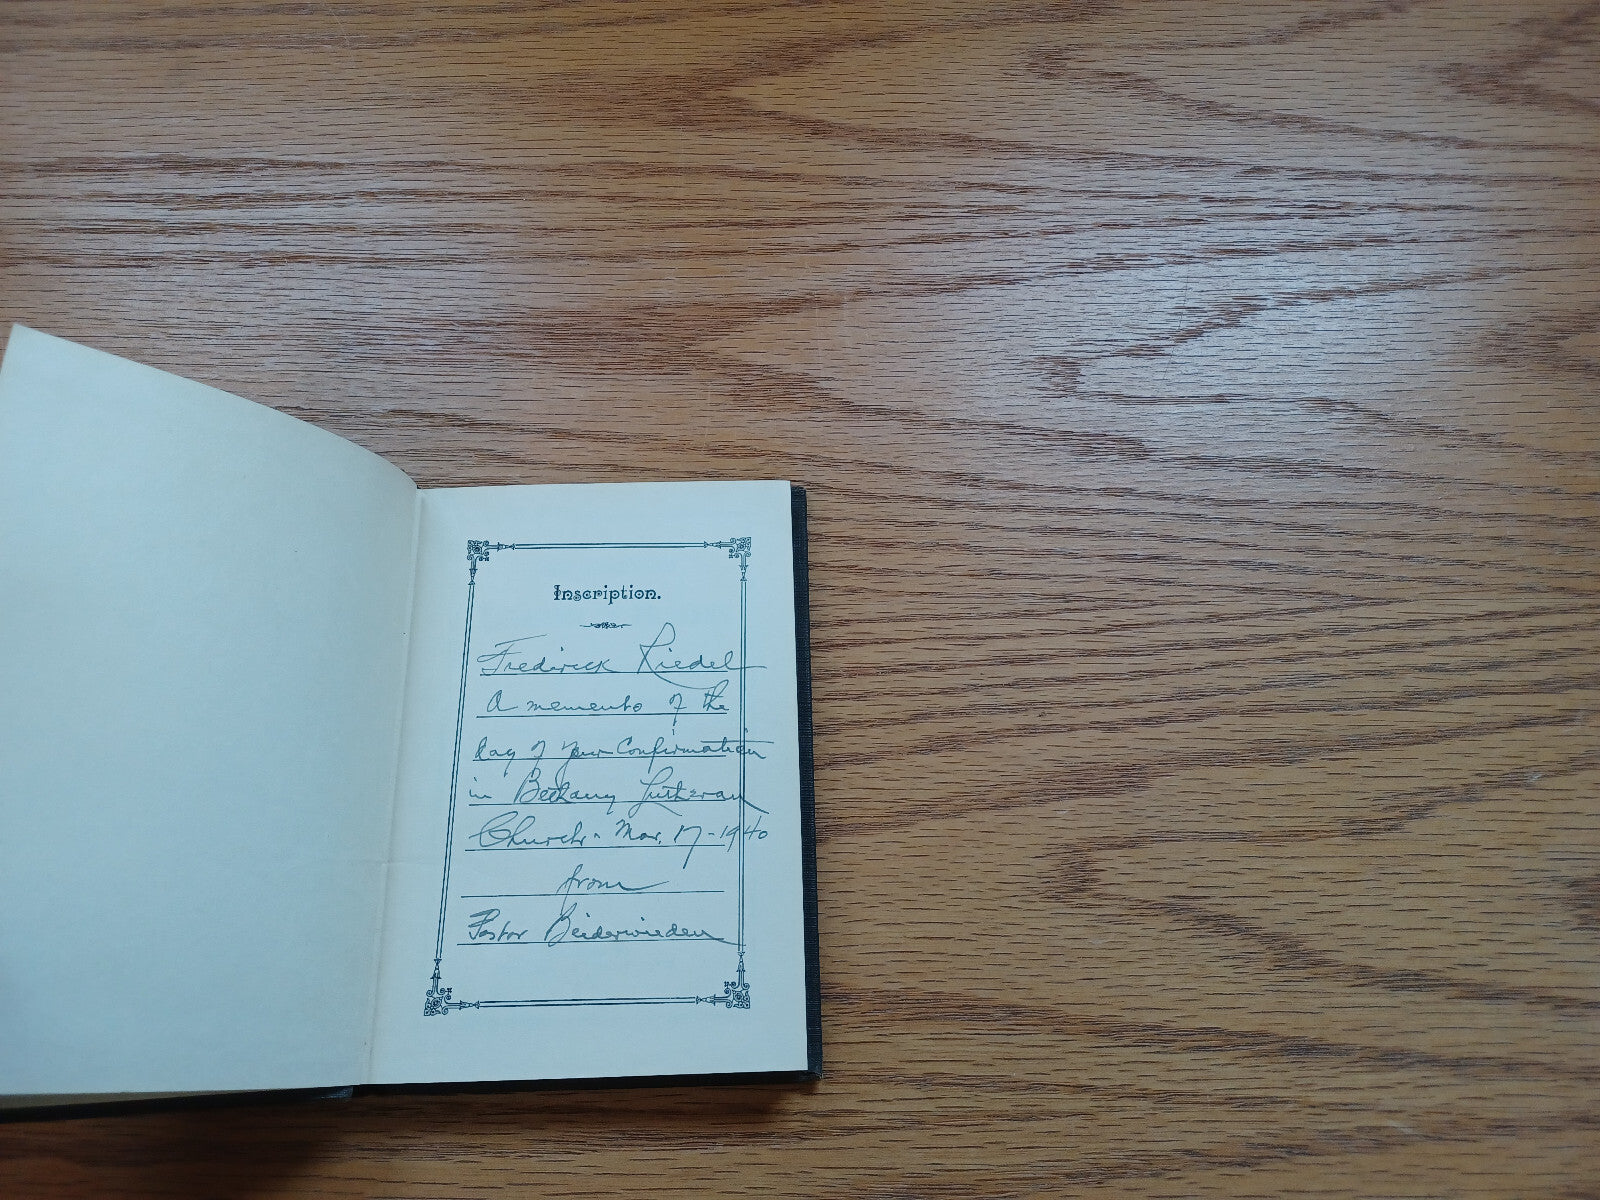 Inscription.
Frederick Riedel
A memento of the
day of your Confirmation
in Bethany Lutheran
Church. Mar. 17-1940
from
Pastor Beiderwieden